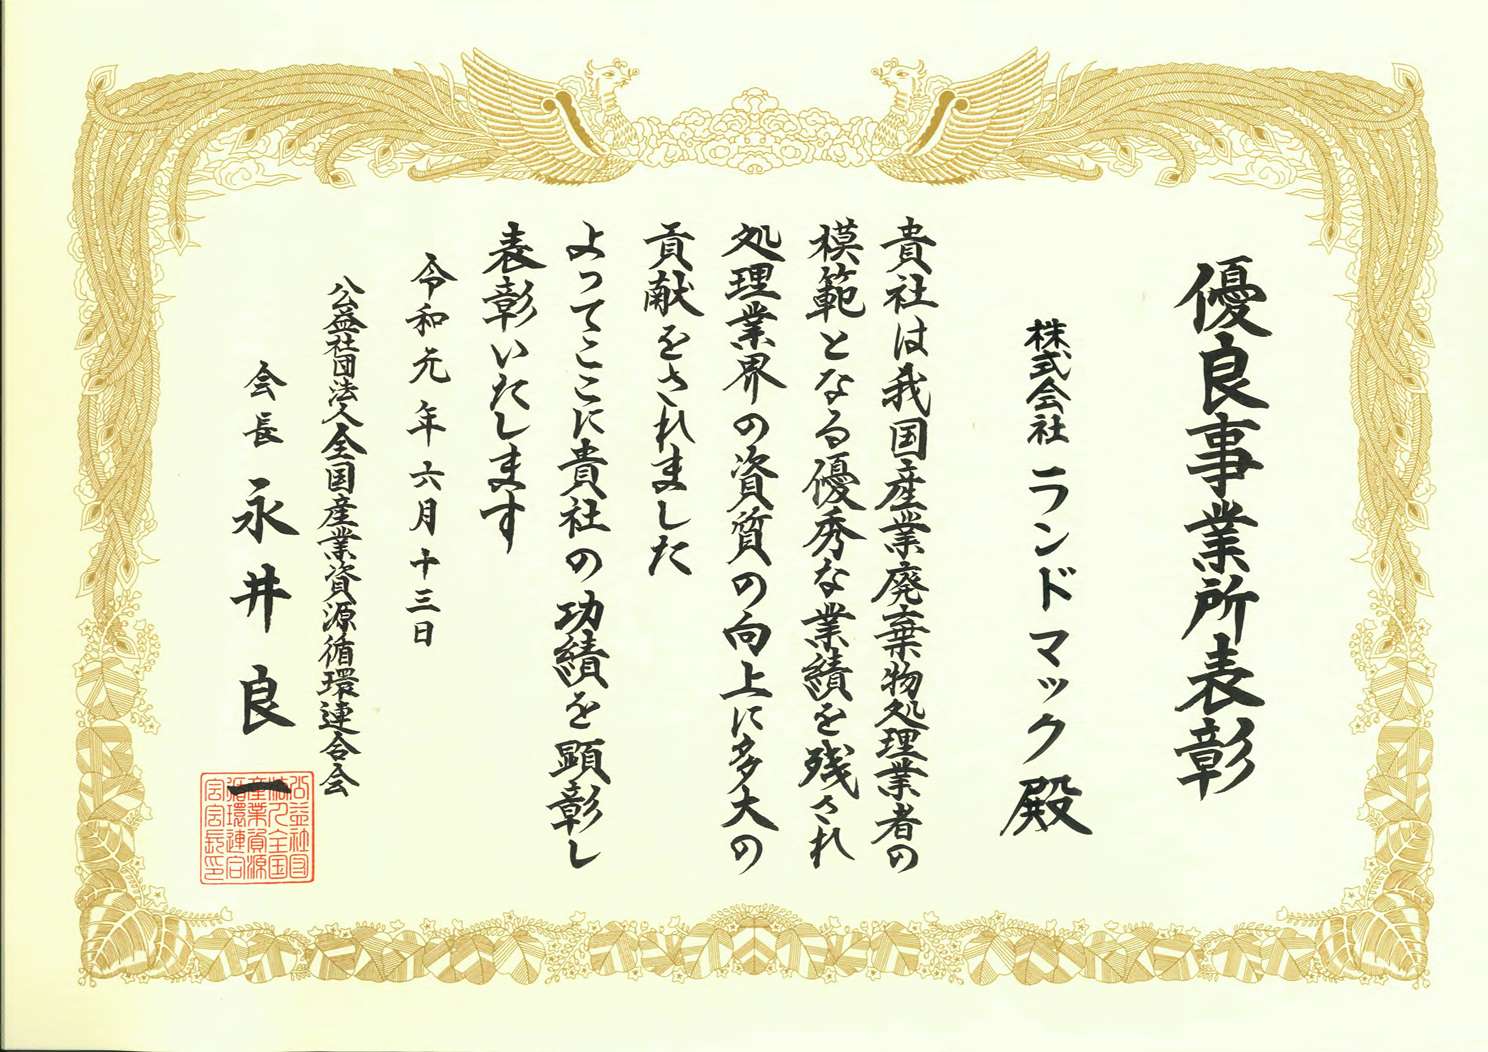 優良事業所表彰
株式会社 ランドマック 殿
貴社は我国産業廃棄物処理業者の
模範となる優秀な業績を残され
処理業界の資質の向上に多大の
貢献をされました
よってここに貴社の功績を顕彰し
表彰いたします
令和元年六月十三日
公益社団法人全国産業資源循環連合会
会長 永井良一
公益社団
法人全国
産業資源
循環連合
会会長印